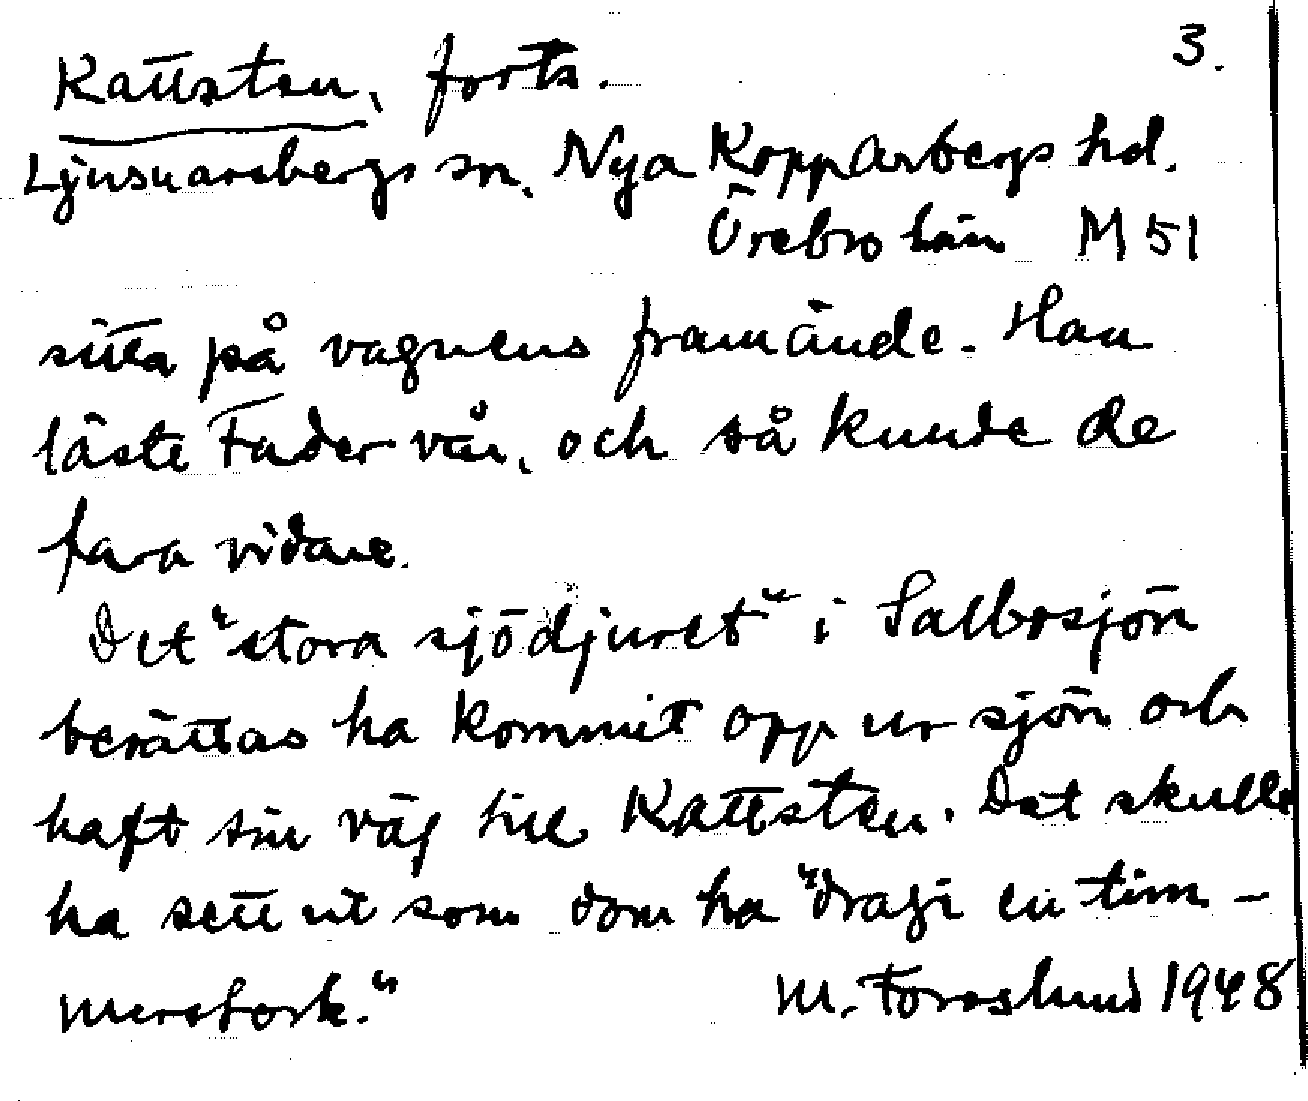 3.
Kattsten, forts.
Ljusnarsbergs sn, Nya Kopparbergs hd.
Örebro län M 51
sitta på vagnens framände. Han
läste Fader vår, och så kunde de
fara vidare.
Det "stora sjödjuret" i Salbosjön
berättas ha kommit opp ur sjön och
haft sin väg till Kattsten. Dät skulle
ha sett ut som dom ha "dragi en tim-
merstock."
M. Forsslund 1948